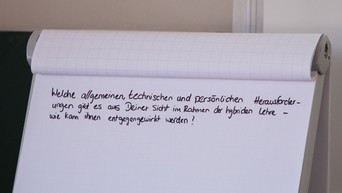 Welche allgemeinen, technischen und persönlichen Herausforder-
ungen gibt es aus Deiner Sicht im Rahmen der hybriden Lehre –
wie kann ihnen entgegengewirkt werden?